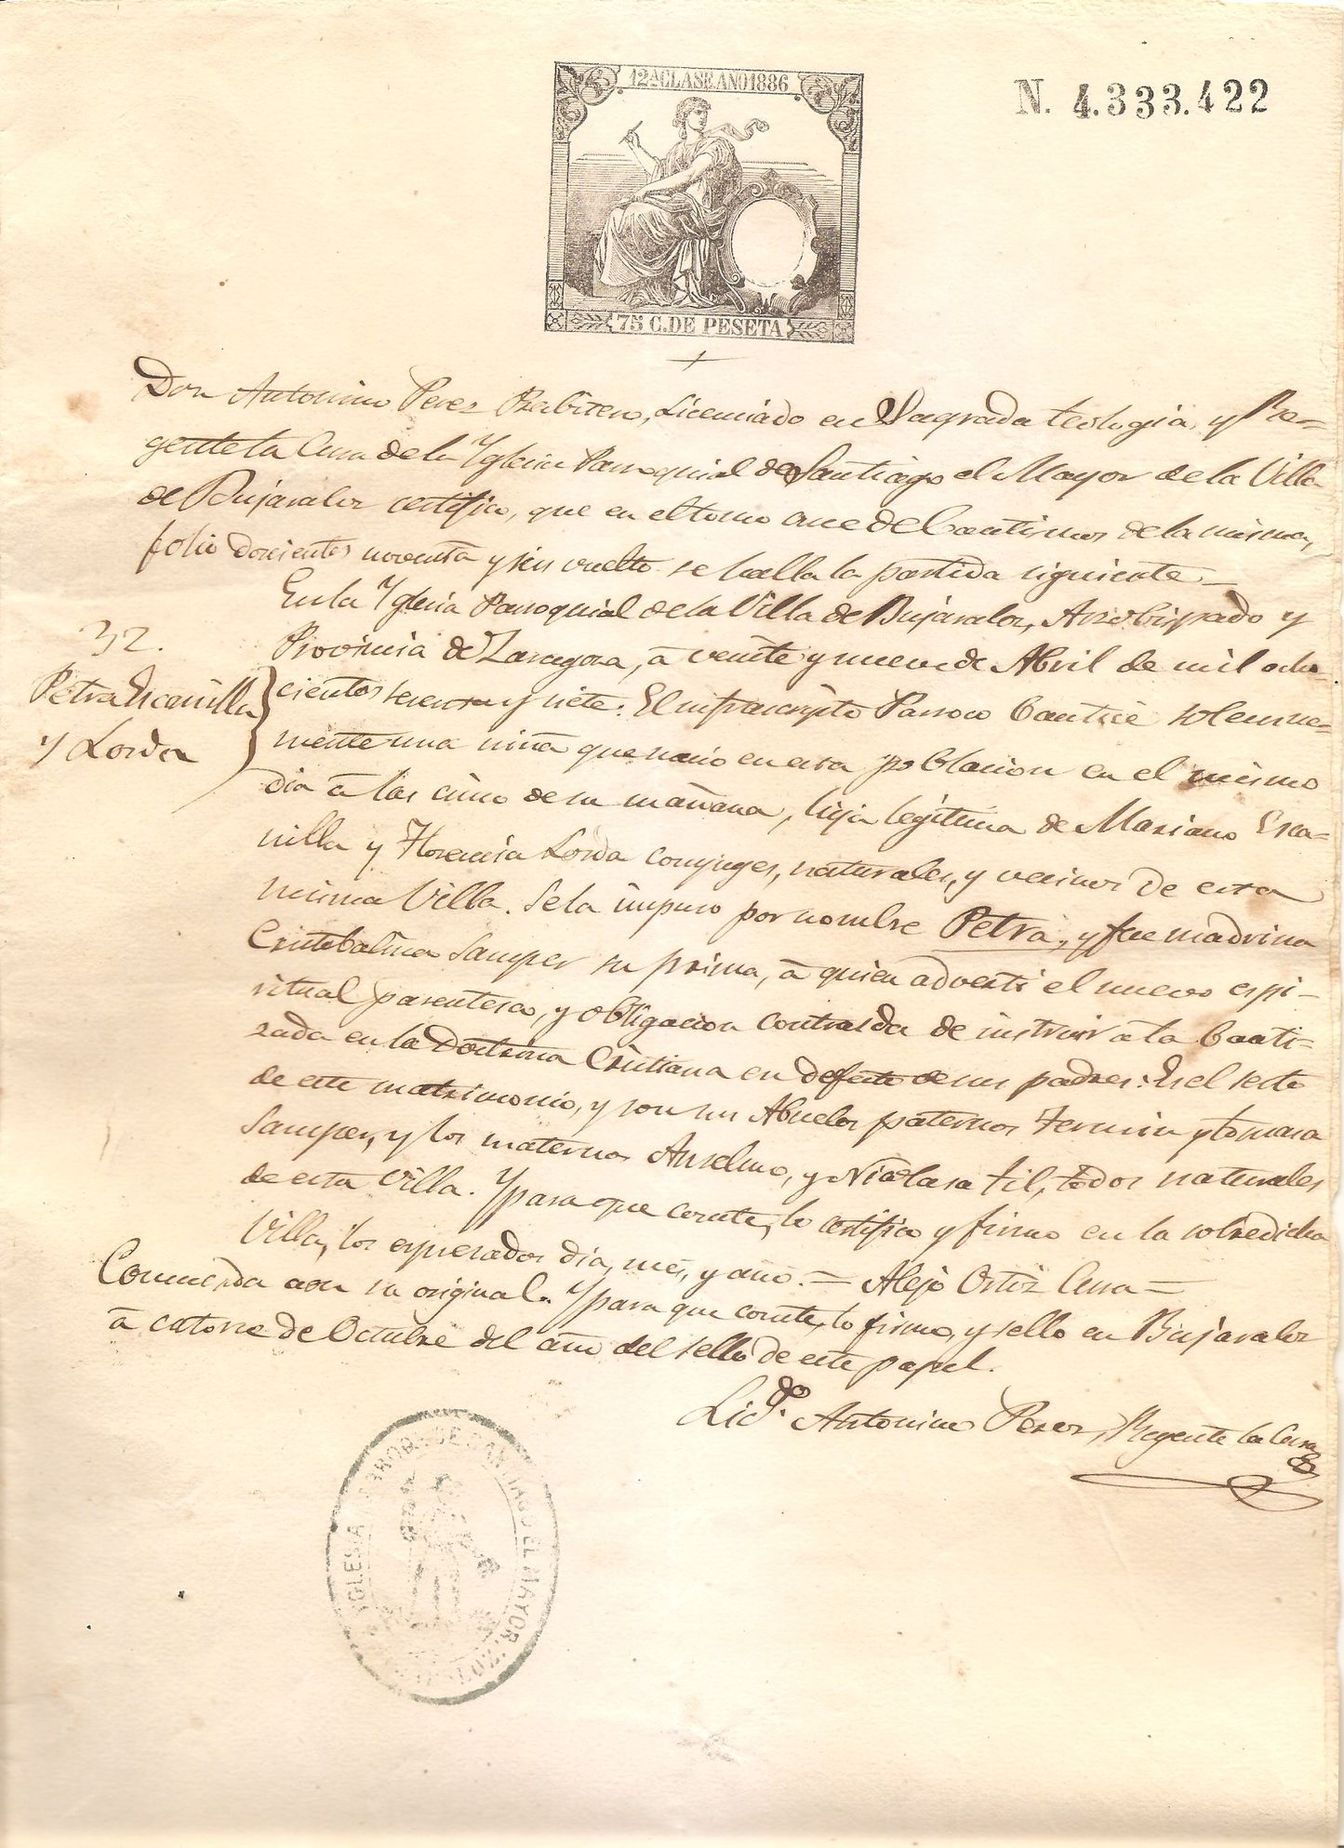 12ª CLASE AÑO 1886
N. 4.333.422
75 C. DE PESETA
Don Antonino Perez Presbitero, Licenciado en Sagrada teologia, y Re=
gente la Cura de la Yglesia Parroquial de Santiago el Mayor de la Villa
de Bujaraloz certifico, que en el tomo once de Bautismos de la misma,
folio doscientos noventa y seis vuelto se halla la partida siguiente=
En la Yglesia Parroquial de la Villa de Bujaraloz, Arzobispado y
Provincia de Zaragoza, á veinte y nueve de Abril de mil ocho=
cientos sesenta y siete: El infrascripto Parroco Bauticé solemne=
mente una niña que nacio en esta poblacion en el mismo
dia á las cinco de su mañana, hija legitima de Mariano Esca=
nilla y Florencia Lorda conyuges, naturales, y vecinos de esta
misma Villa. Se la impuso por nombre Petra, y fue madrina
Cristobalina Samper su prima, á quien advertí el nuevo espi-
ritual parentesco, y obligacion contraida de instruir á la Bauti=
zada en la Doctrina Cristiana en defecto de sus padres: Es el sesto
de este matrimonio, y son sus Abuelos paternos Fermin y Tomasa
Samper, y los maternos Anselmo, y Nicolasa Gil, todos naturales
de esta Villa. Y para que conste, lo certifico y firmo en la sobredicha
Villa, los espresados dia, mes, y año.= Alejo Ortiz Cura=
32.
Petra Escanilla
y Lorda
Concuerda con su original. Y para que conste, lo firmo, y sello en Bujaraloz
á catorce de Octubre del año del sello de este papel.
Licdo. Antonino Perez, Regente la Cura
IGLESIA PARROQ. DE SANTIAGO EL MAYOR